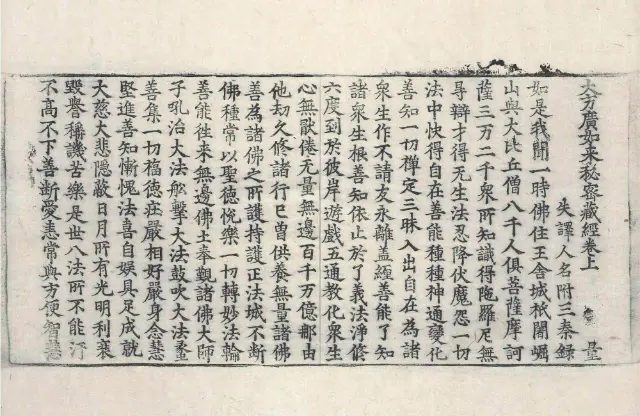 大方廣如来秘密藏經卷上
失譯人名附三秦錄 量
如是我聞一時佛住王舍城祇闍崛
山與大比丘僧八千人俱菩薩摩訶
薩三万二千衆所知識得陁羅尼無
㝵辯才得无生法忍降伏魔怨一切
法中快得自在善能種種神通變化
善知一切禪定三昧入出自在為諸
衆生作不請友永離蓋纏善能了知
諸衆生根善知依止於了義法淨修
六度到於彼岸遊戲五通教化衆生
心無猒倦无量無邊百千万億那由
他劫久修諸行已曾供養無量諸佛
善為諸佛之所護持護正法城不斷
佛種常以聖德悅樂一切轉妙法輪
善能徃来無邊佛土奉觀諸佛大師
子吼治大法舩擊大法鼓吹大法䗍
善集一切福德莊嚴相好嚴身念慧
堅進善知慚愧法喜自娛具足成就
大慈大悲隱蔽日月所有光明利衰
毀譽稱譏苦樂是世八法所不能汙
不高不下善斷愛恚常與方便智慧